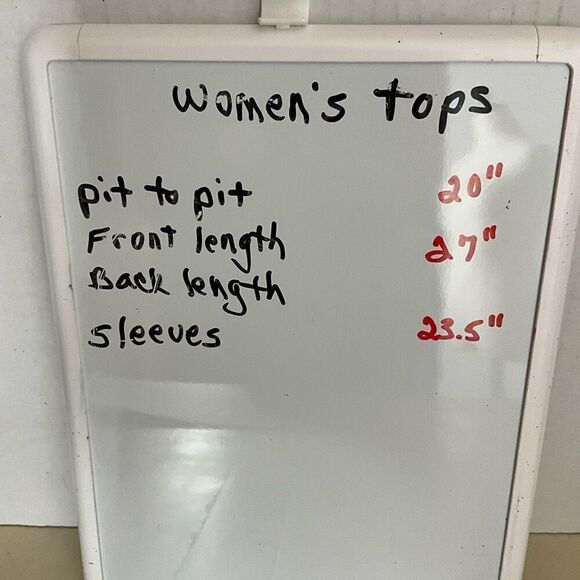 Women's tops
pit to pit 20"
Front length 27"
Back length
sleeves 23.5"